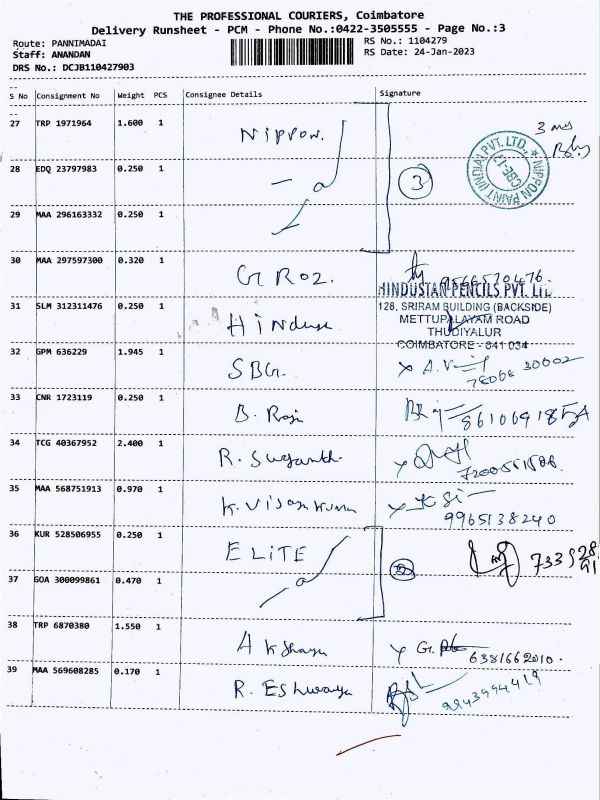 THE PROFESSIONAL COURIERS, Coimbatore
Delivery Runsheet - PCM - Phone No.:0422-3505555 - Page No.:3
Route: PANNIMADAI
RS No.: 1104279
Staff: ANANDAN
RS Date: 24-Jan-2023
DRS No.: DCJB110427903
S No Consignment No Weight PCS Consignee Details Signature
27 TRP 1971964 1.600 1 Nippon.
NIPPON PAINT (INDIA) PVT. LTD.,
28 EDQ 23797983 0.250 1 3
29 MAA 296163332 0.250 1
30 MAA 297597300 0.320 1 G Roz.
HINDUSTAN PENCILS PVT. Ltd
31 SLM 312311476 0.250 1 128, SRIRAM BUILDING (BACKSIDE)
METTUPALAYAM ROAD
THUDIYALUR
COIMBATORE - 641 034
32 GPM 636229 1.945 1 SBG.
33 CNR 1723119 0.250 1 B. Raji
34 TCG 40367952 2.400 1 R. Suganth
35 MAA 568751913 0.970 1 K. Vijaya Kumar
9965138240
36 KUR 528506955 0.250 1 ELITE
37 GOA 300099861 0.470 1
38 TRP 6870380 1.550 1 Akshaya
6381662010.
39 MAA 569608285 0.170 1 R. Eshwarya
9943994419